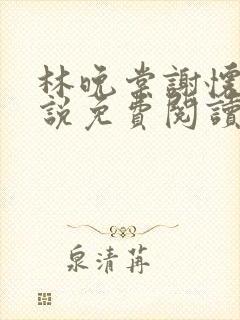 林晚棠謝懷
說免費閱讀
泉清苒